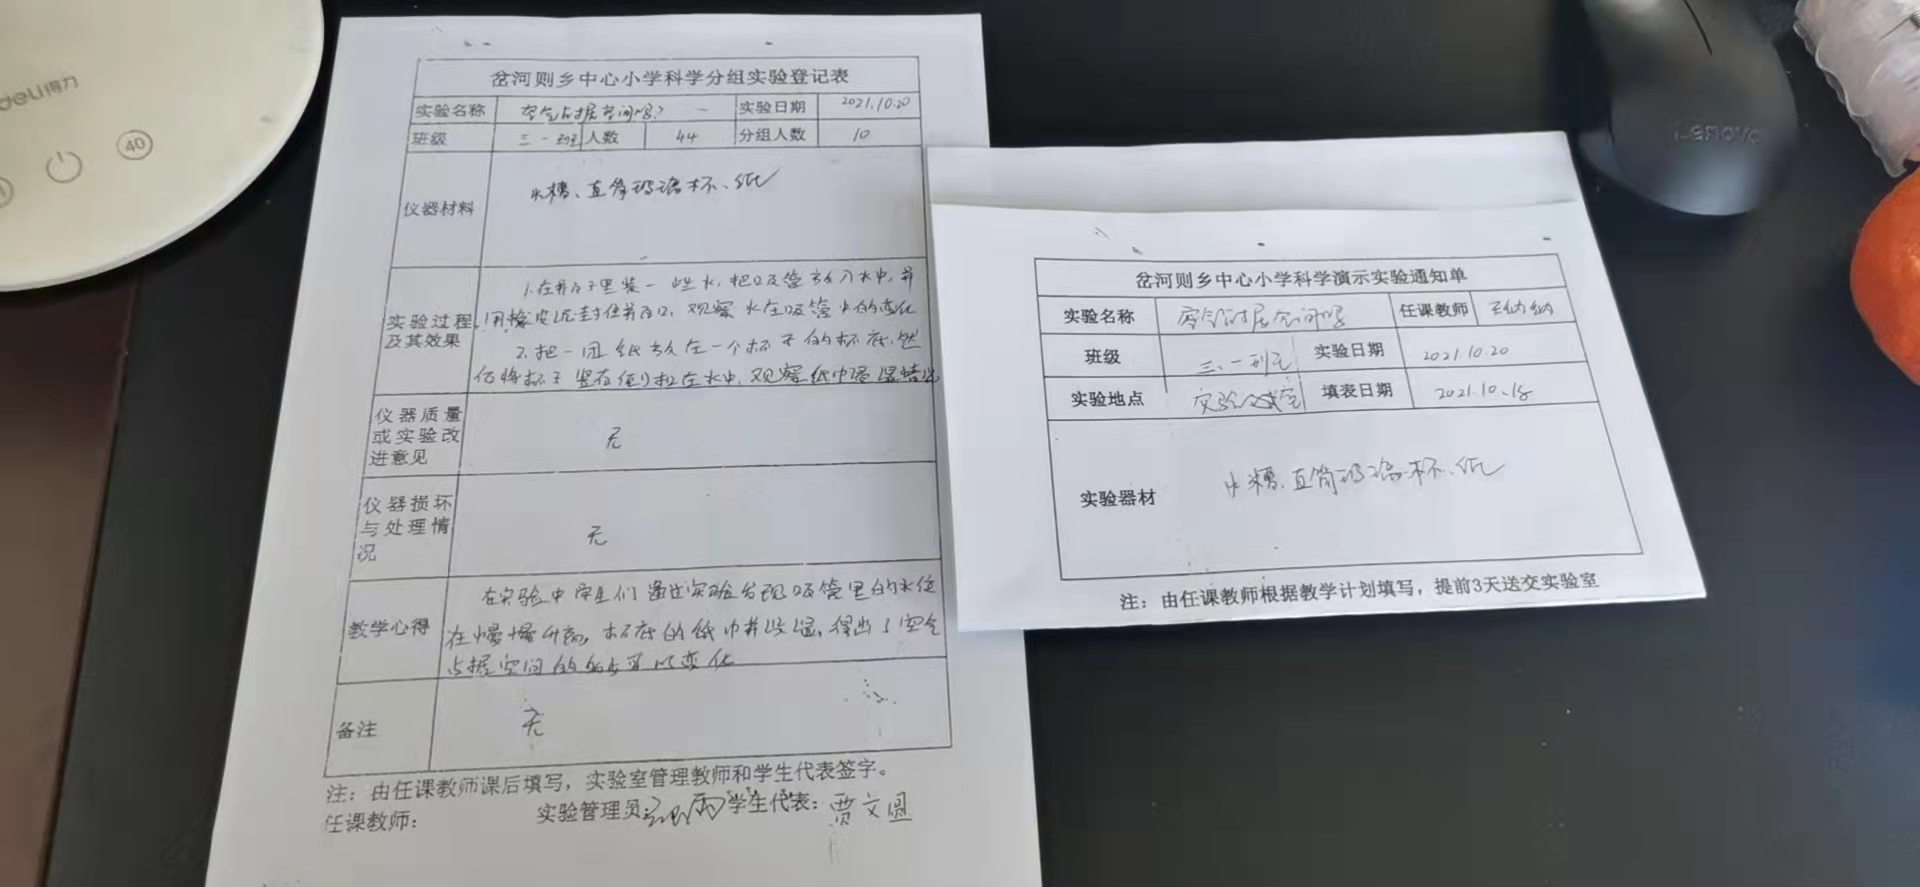 deli得力
40
岔河则乡中心小学科学分组实验登记表
实验名称 空气占据空间吗? 实验日期 2021.10.20
班级 三·一班 人数 44 分组人数 10
仪器材料 水槽、直筒玻璃杯、纸
实验过程及其效果
1.在瓶子里装一些水,把吸管放入水中,并
用橡皮泥封住瓶口,观察水在吸管中的变化
2.把一团纸放在一个杯子的杯底,然
后将杯子竖直倒扣在水中,观察纸巾
仪器质量
或实验改
进意见
无
仪器损坏
与处理情
况
无
教学心得
在实验中学生们通过实验发现吸管里的水位
在慢慢升高,杯底的纸巾 得出了空气
占据空间的 可以变化
备注 无
注:由任课教师课后填写,实验室管理教师和学生代表签字。
任课教师: 实验管理员: 学生代表:贾文圆
岔河则乡中心小学科学演示实验通知单
实验名称 空气占据空间吗 任课教师
班级 三·一班 实验日期 2021.10.20
实验地点 实验室 填表日期 2021.10.18
实验器材 水槽、直筒玻璃杯、纸
注:由任课教师根据教学计划填写,提前3天送交实验室
Lenovo